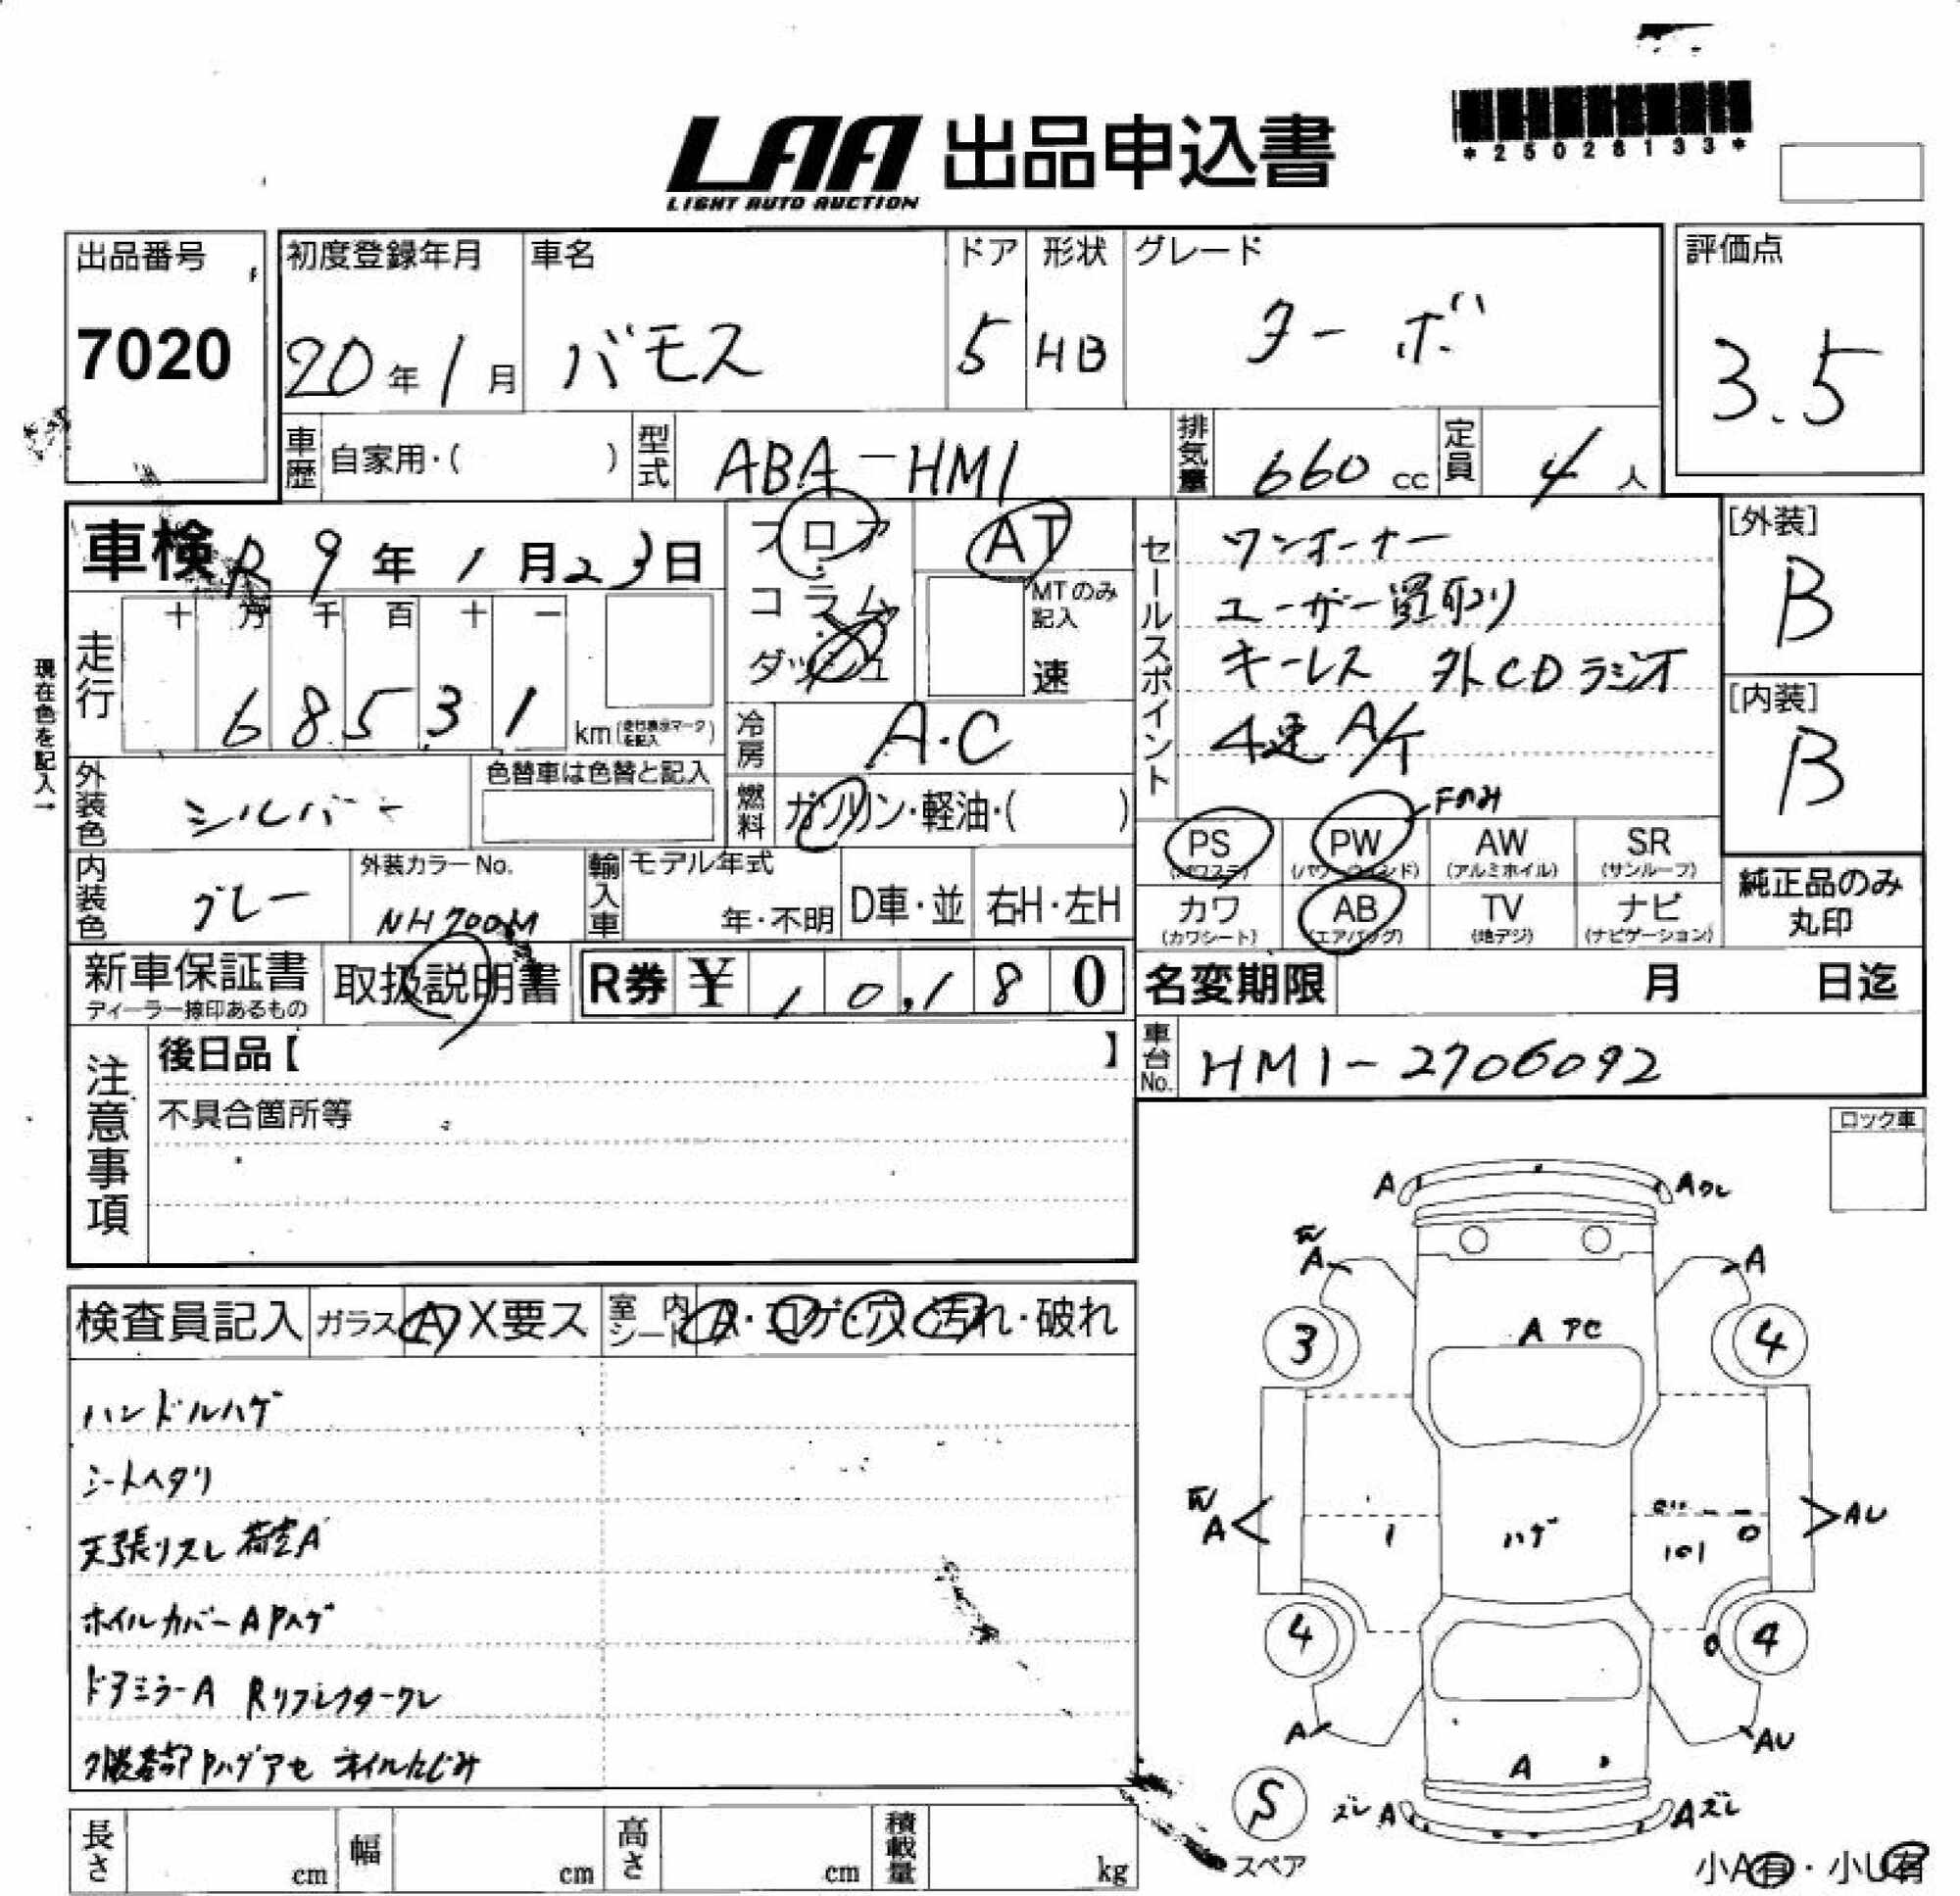 LAA 出品申込書
LIGHT AUTO AUCTION
*25028133*
出品番号
7020
初度登録年月
20年1月
車名
バモス
ドア
5
形状
HB
グレード
ターボ
評価点
3.5
車歴 自家用・( )
型式 ABA-HM1
排気量 660 cc
定員 4人
車検 R9年1月23日
フロア
コラム
ダッシュ
AT
MTのみ記入
速
走行
十 万 千 百 十 一
68531
km(走行表示マークを記入)
現在色を記入→
外装色 シルバー
色替車は色替と記入
冷房 A・C
燃料 ガソリン・軽油・( )
内装色 グレー
外装カラーNo.
NH700M
輸入車
モデル年式
年・不明
D車・並
右H・左H
セールスポイント
ワンオーナー
ユーザー買取り
キーレス 外CDラジオ
4速A/T
Fのみ
PS (パワステ)
PW (パワーウインド)
AW (アルミホイル)
SR (サンルーフ)
カワ (カワシート)
AB (エアバッグ)
TV (地デジ)
ナビ (ナビゲーション)
[外装]
B
[内装]
B
純正品のみ
丸印
新車保証書
ディーラー捺印あるもの
取扱説明書
R券 ¥ 10,180
名変期限 月 日迄
車台No. HM1-2706092
注意事項
後日品【 】
不具合箇所等
ロック車
検査員記入
ガラス A X要ス
室内シート A・コゲ・穴・汚れ・破れ
ハンドルハゲ
シートヘタリ
天張リスレ 荷室A
ホイルカバーAPハゲ
ドアミラーA Rリフレクターワレ
Pハゲアセ オイルにじみ
A
Aワレ
A
A
3
A アセ
4
A
1
ハゲ
AU
4
4
A
AU
A
ズレ A
Aズレ
S
スペア
小A有・小U有
長さ cm
幅 cm
高さ cm
積載量 kg